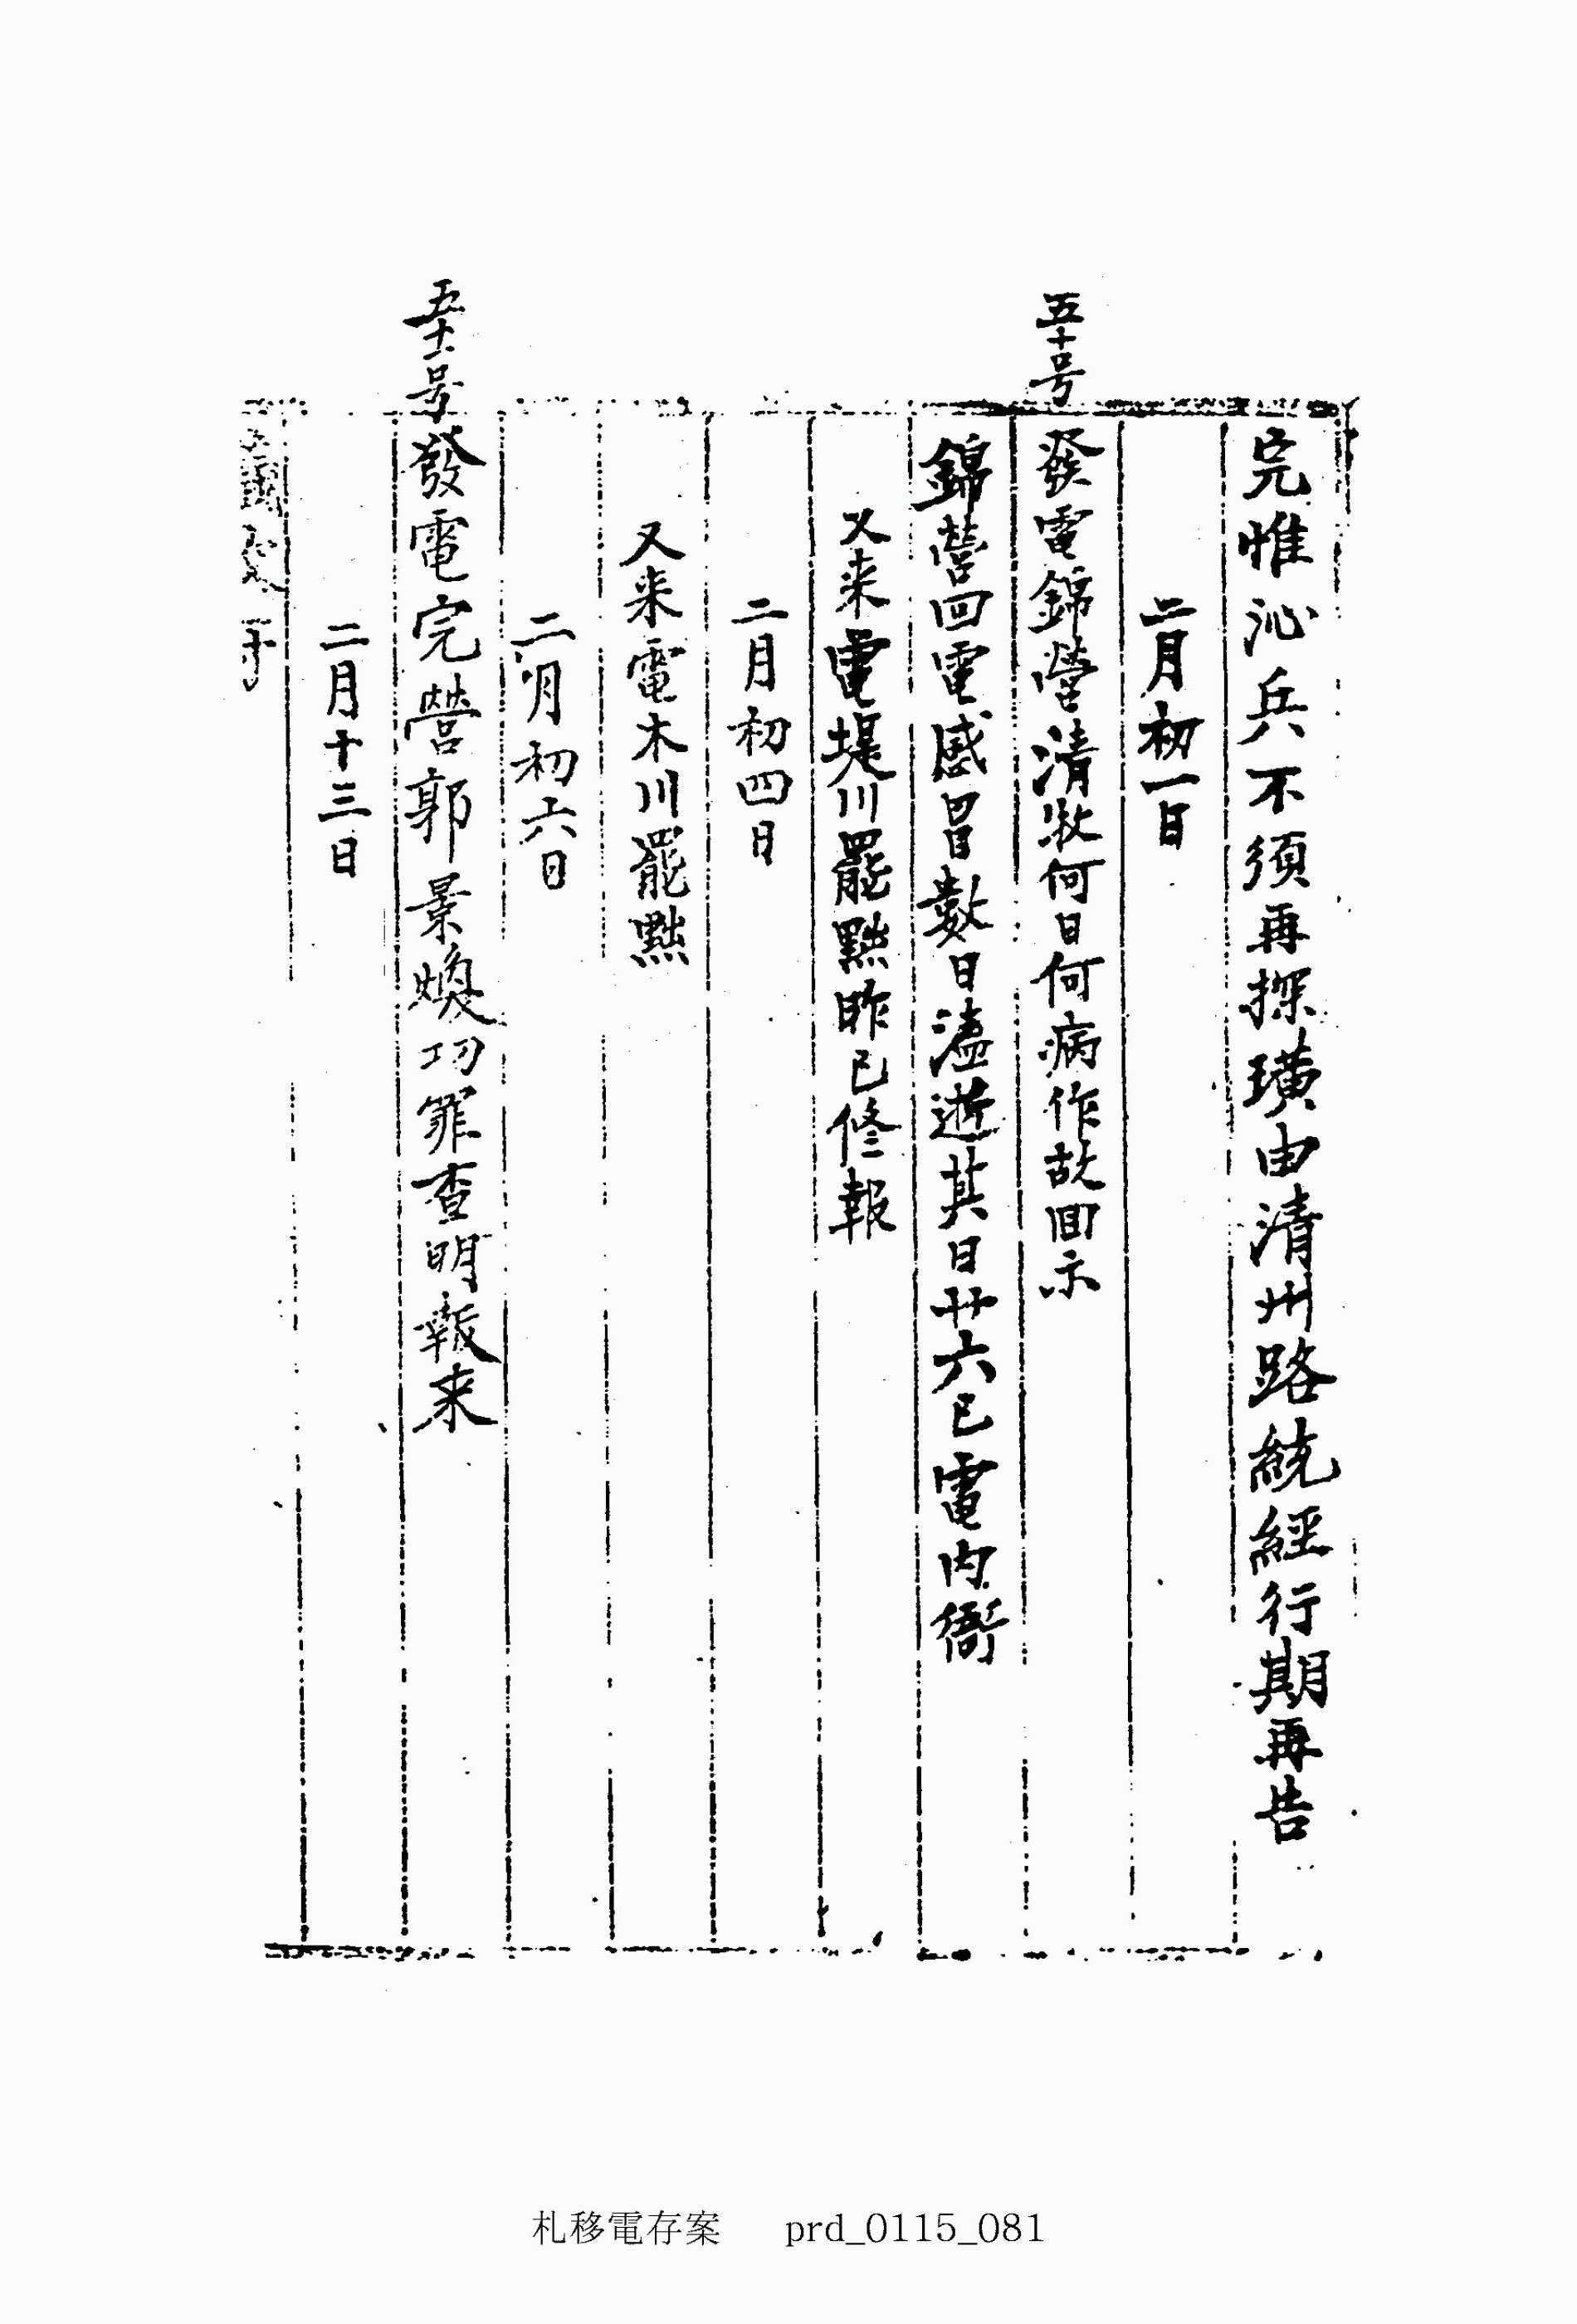 完惟沁兵不須再探璜由清州路統經行期再告
二月初一日
五十号
發電錦營清牧何日何病作故回示
錦營回電感冒數日溘逝其日廿六已電內衙
又來電堤川罷黜昨已修報
二月初四日
又來電木川罷黜
二月初六日
五十一号
發電完營郭景煥功罪查明報來
二月十三日
札移電存案 prd_0115_081